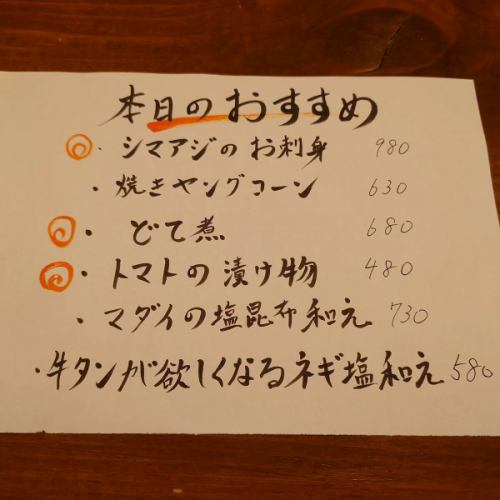 本日のおすすめ
・シマアジのお刺身 980
・焼きヤングコーン 630
・どて煮 680
・トマトの漬け物 480
・マダイの塩昆布和え 730
・牛タンが欲しくなるネギ塩和え 580